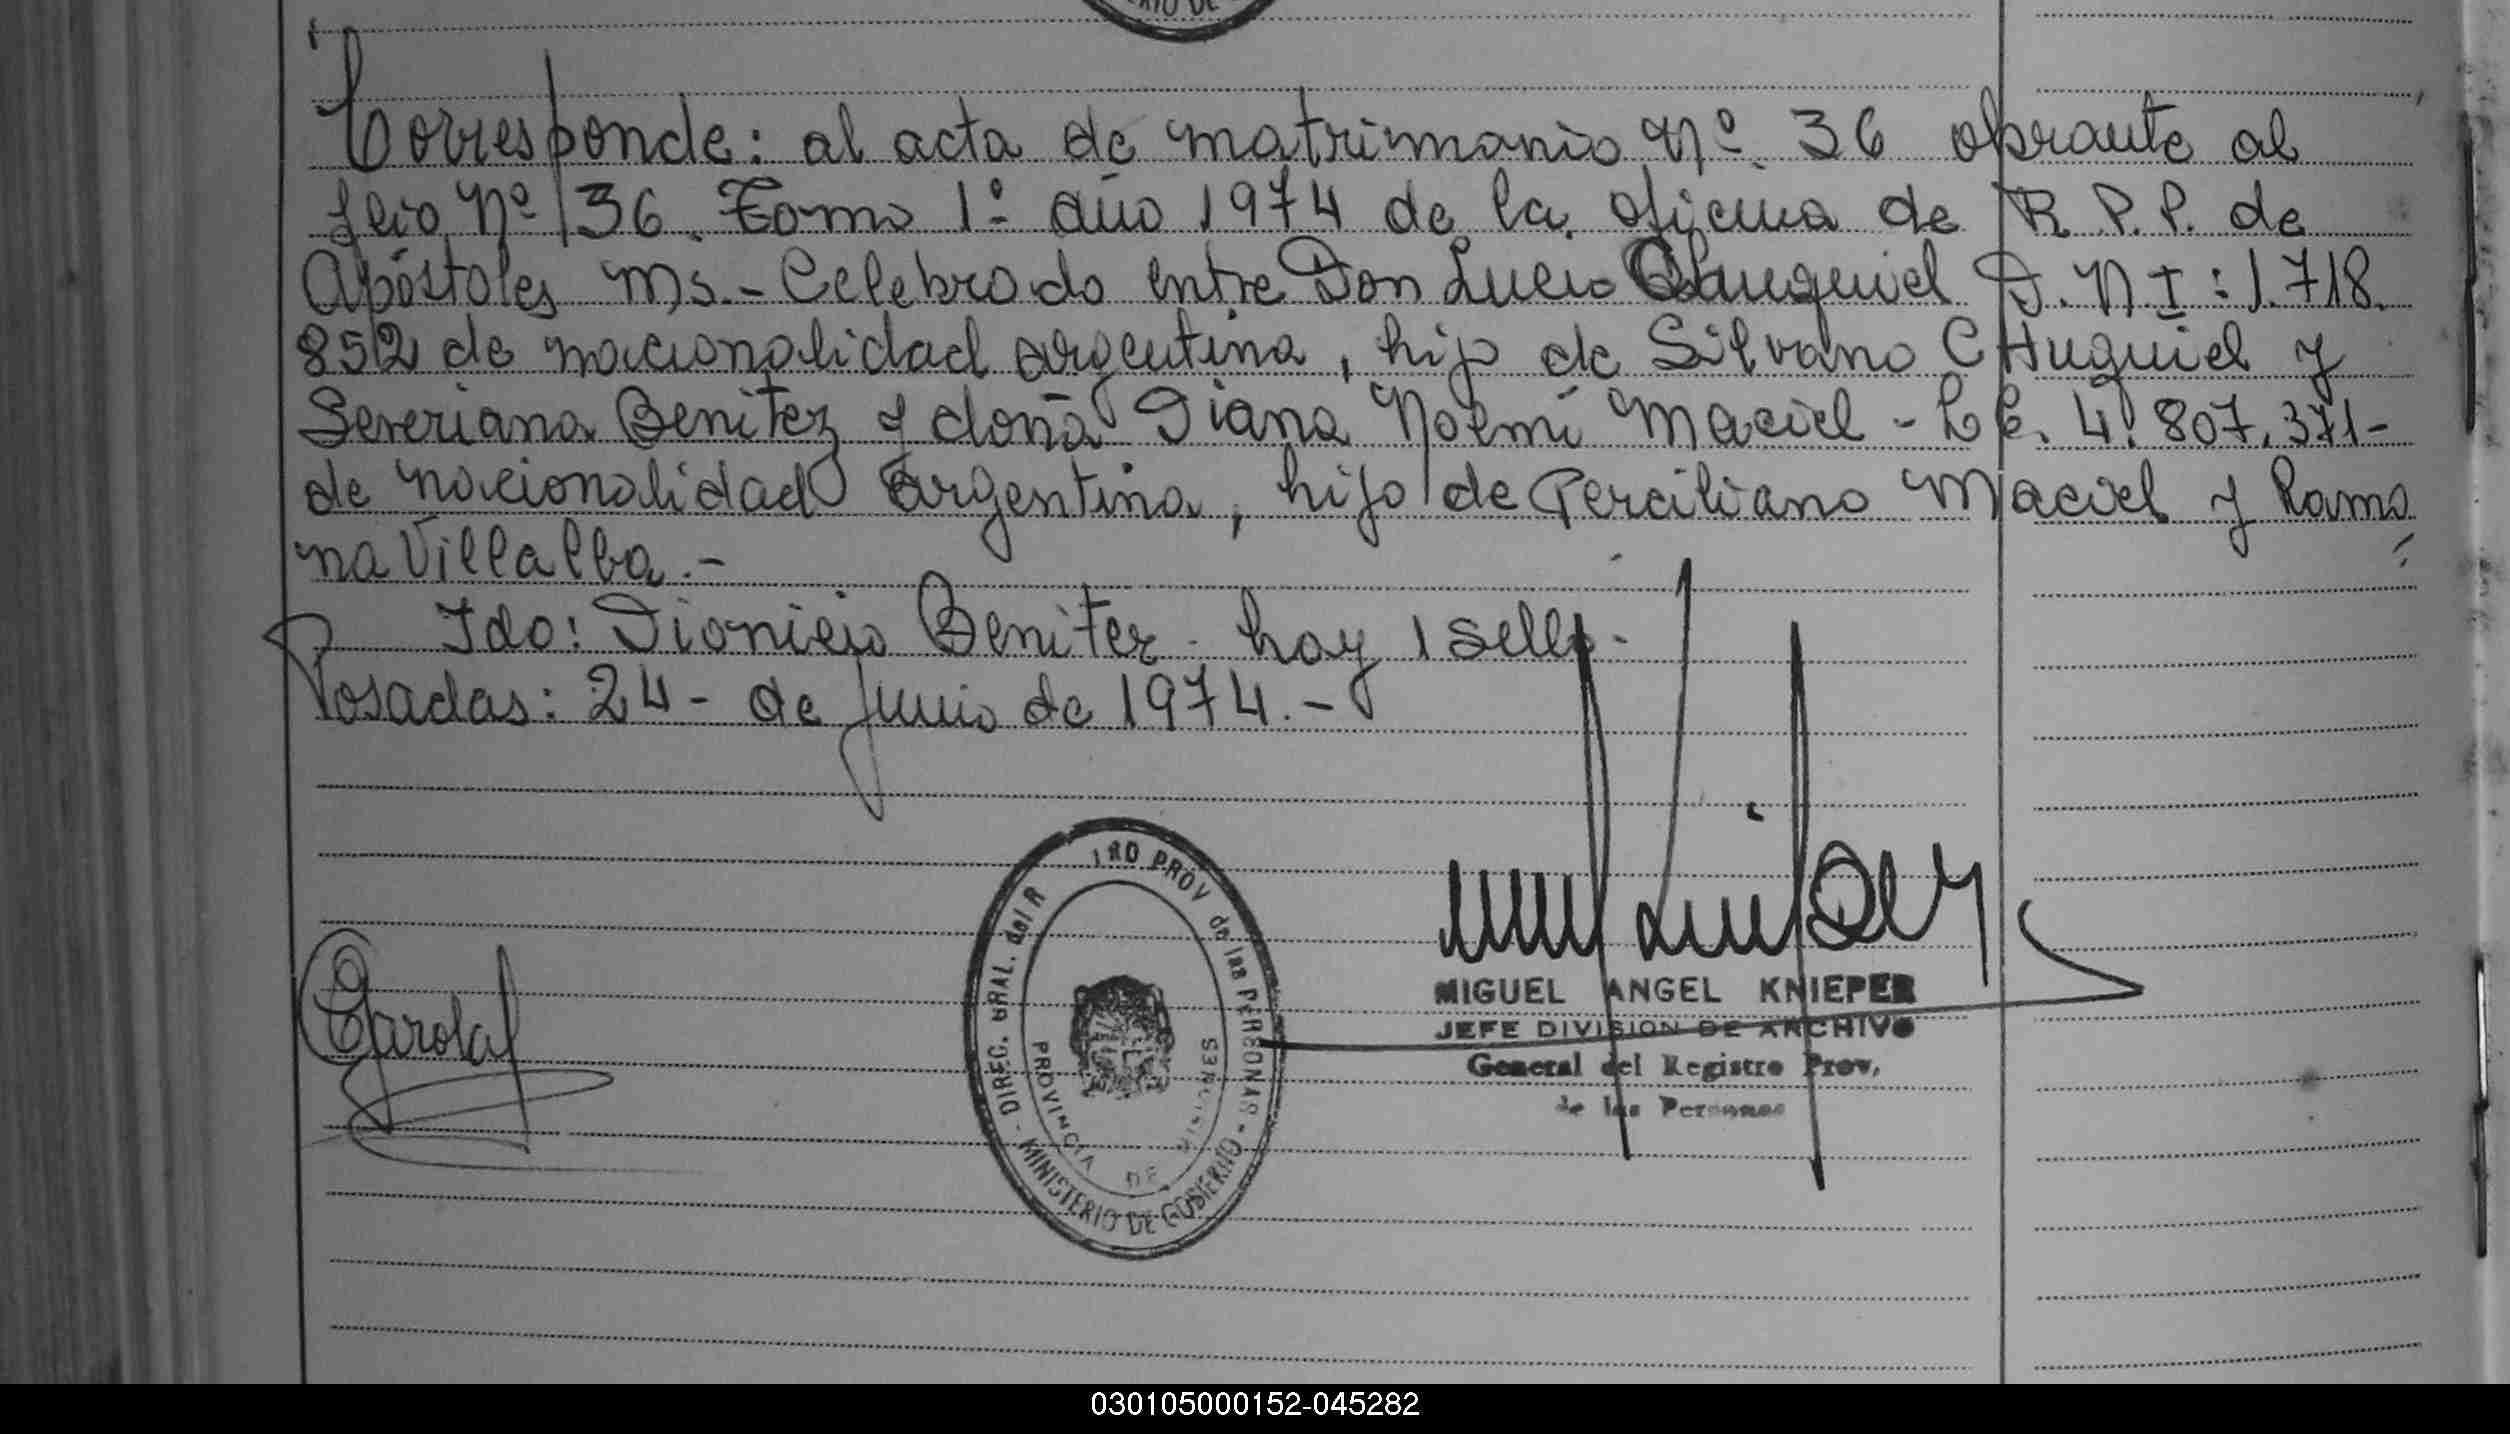 RIO DE
Corresponde: al acta de matrimonio Nº 36 obrante al
flio Nº 36. Tomo 1º año 1974 de la oficina de R.P.P. de
Apóstoles Ms.- Celebrado entre Don Lucio Chuquiel D.N I: 1.718.
852 de nacionalidad argentina, hijo de Silvano CHuquiel y
Severiana Benitez y doña Diana Noemí Maciel - L C. 4.807.371-
de nacionalidad argentina, hijo de Perciliano Maciel y Ramo
na Villalba.-
Fdo: Dionicio Benitez - hay 1 sello-
Posadas: 24- de Junio de 1974.-
DIREC. GRAL. del R TRO PROV de las PERSONAS - MINISTERIO DE GOBIERNO -
PROVINCIA DE MISIONES
MIGUEL ANGEL KNIEPER
JEFE DIVISION DE ARCHIVO
General del Registro Prov.
de las Personas
030105000152-045282